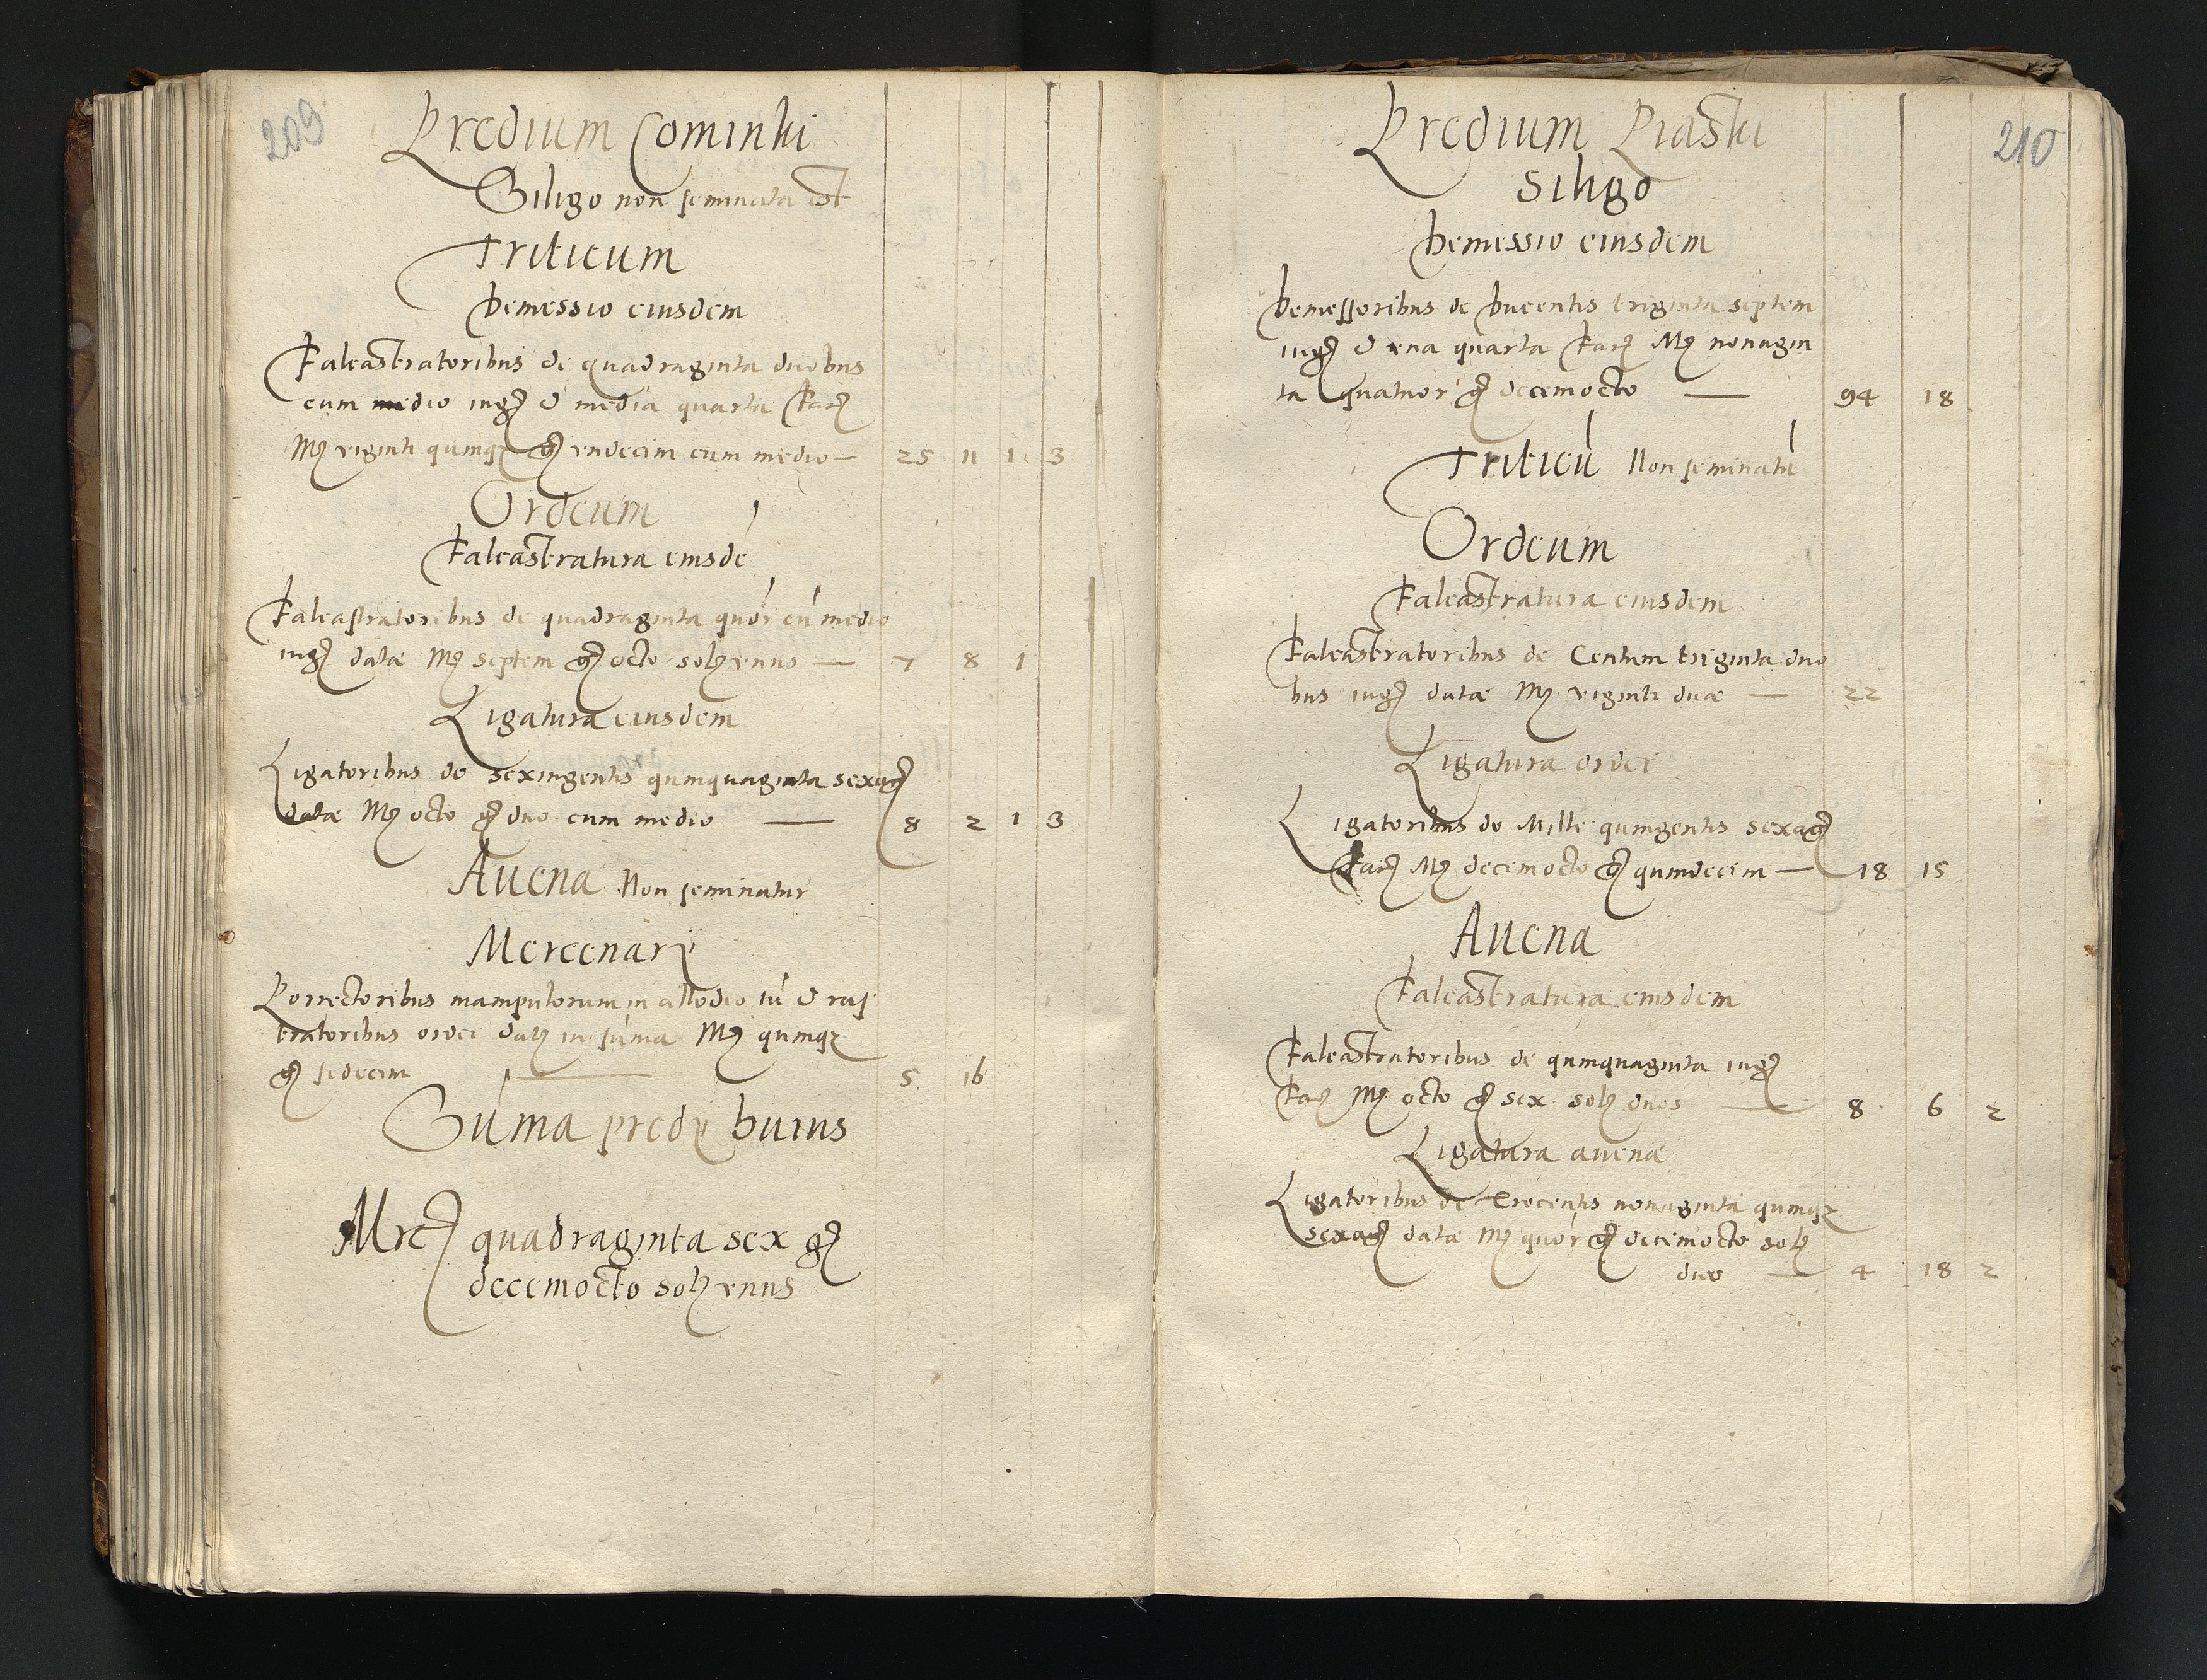 209
Predium Cominki
Siligo non seminata est
Triticum
Demessio eiusdem
Falcastratoribus de quadraginta duobus
cum medio iug & media quarta fac
Mr viginti quinqz gr vndecim cum medio — 25 11 1 3
Ordeum
Falcastratura eiusdē
Falcastratoribus de quadraginta quōr cū medio
iug datæ Mr septem gr octo solz vnus — 7 8 1
Ligatura eiusdem
Ligatoribus de sexingentis quinquaginta sexag
datæ Mr octo gr duo cum medio — 8 2 1 3
Auena Non seminatur
Mercenarÿ
Porrectoribus manipulorum in allodio tū & ras
tratoribus ordei datz in sūma Mr quinqz
gr sedecim — 5 16
Sūma predÿ huius
Mrc quadraginta sex gr
decemocto solz vnus
210
Predium Piaski
Siligo
Demessio eiusdem
Demessoribus de Ducentis triginta septem
iug & vna quarta fac Mr nonagin
ta quatuor gr decemocto — 94 18
Triticū Non seminatū
Ordeum
Falcastratura eiusdem
Falcastratoribus de Centum triginta duo
bus iug datæ Mr viginti duæ — 22
Ligatura ordei
Ligatoribus de Mille quingentis sexag
fac Mr decemocto gr quindecim — 18 15
Auena
Falcastratura eiusdem
Falcastratoribus de quinquaginta iug
fac Mr octo gr sex solz duos — 8 6 2
Ligatura auenæ
Ligatoribus de Trecentis nonaginta quinqz
sexag datæ Mr quōr gr decemocto solz
duo — 4 18 2